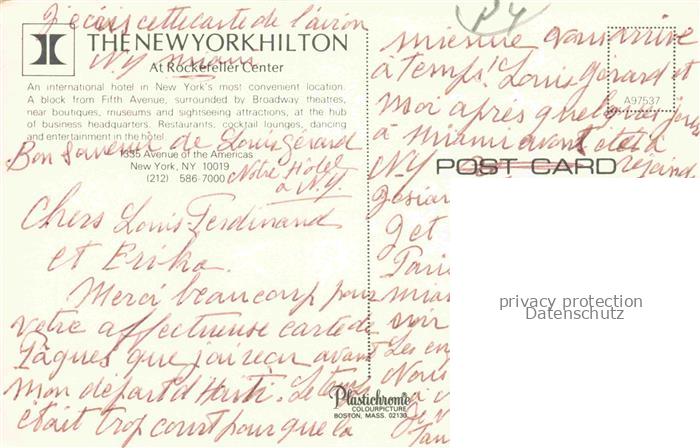 J'écris cette carte de l'avion
NY Miami
THE NEW YORK HILTON
At Rockefeller Center
An international hotel in New York's most convenient location.
A block from Fifth Avenue, surrounded by Broadway theatres,
near boutiques, museums and sightseeing attractions, at the hub
of business headquarters. Restaurants, cocktail lounges, dancing
and entertainment in the hotel.
Bon Souvenir de Louis Gérard
1335 Avenue of the Americas
New York, NY 10019
(212) 586-7000
Notre Hôtel
à N.Y.
Chers Louis-Ferdinand
et Erika.
Merci beaucoup pour
votre affectueuse carte de
Pâques que j'ai reçu avant
mon départ d'Haïti. Le temps
était trop court pour que la
Plastichrome
COLOURPICTURE
BOSTON, MASS. 02130
mienne vous arrive
à temps! Louis Gérard et
moi après quelques jours
à Miami avant
N.Y.
POST CARD
A97537
et
Nous
à
privacy protection
Datenschutz